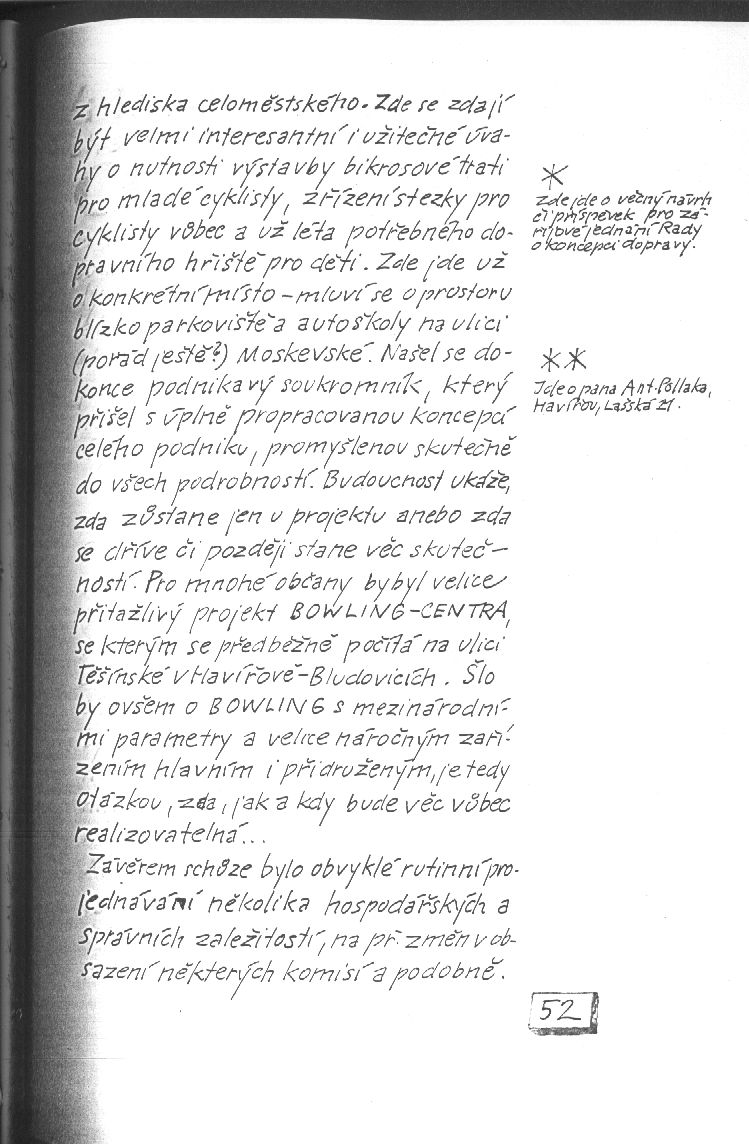 z hlediska celoměstského. Zde se zdají
být velmi interesantní i užitečné úva-
hy o nutnosti výstavby bikrosové trati
pro mladé cyklisty, zřízení stezky pro
cyklisty vůbec a už léta potřebného do-
pravního hřiště pro děti. Zde jde už
o konkrétní místo – mluví se o prostoru
blízko parkoviště a autoškoly na ulici
(pořád ještě?) Moskevské. Našel se do-
konce podnikavý soukromník, který
přišel s úplně propracovanou koncepcí
celého podniku, promyšlenou skutečně
do všech podrobností. Budoucnost ukáže,
zda zůstane jen u projektu anebo zda
se dříve či později stane věc skuteč–
ností. Pro mnohé občany by byl velice
přitažlivý projekt BOWLING-CENTRA,
se kterým se předběžně počítá na ulici
Těšínské v Havířově-Bludovicích. Šlo
by ovšem o BOWLING s mezinárodní-
mi parametry a velice náročným zaří-
zením hlavním i přidruženým, je tedy
otázkou, zda, jak a kdy bude věc vůbec
realizovatelná...
Závěrem schůze bylo obvyklé rutinní pro-
jednávání několika hospodářských a
správních záležitostí, na př. změn v ob-
sazení některých komisí a podobně.
*
Zde jde o věcný návrh
či příspěvek pro zá-
řijové jednání Rady
o koncepci dopravy.
**
Jde o pana Ant. Pollaka,
Havířov, Lašská 21.
52